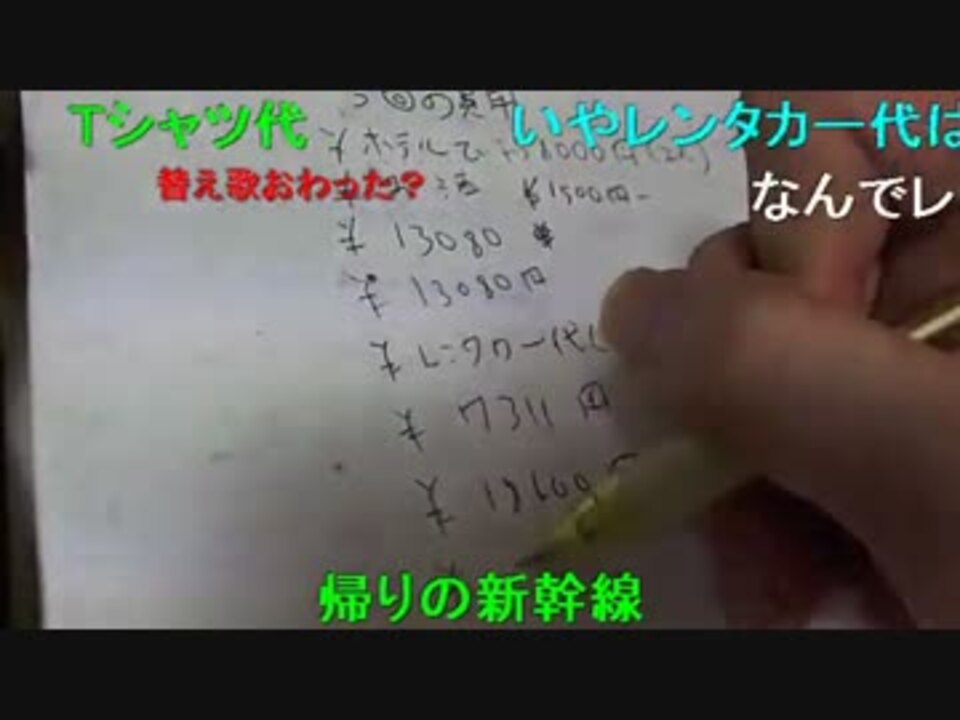 Tシャツ代
いやレンタカー代は
替え歌おわった?
なんでレ
の費用
¥ホテルで 18000円
¥1500円-
¥ 13080
¥ 13080円
¥レンタカー代
¥ 7311円
¥ 19600
帰りの新幹線